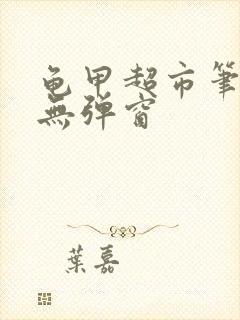 龟甲超市筆
無弹窗
葉嘉